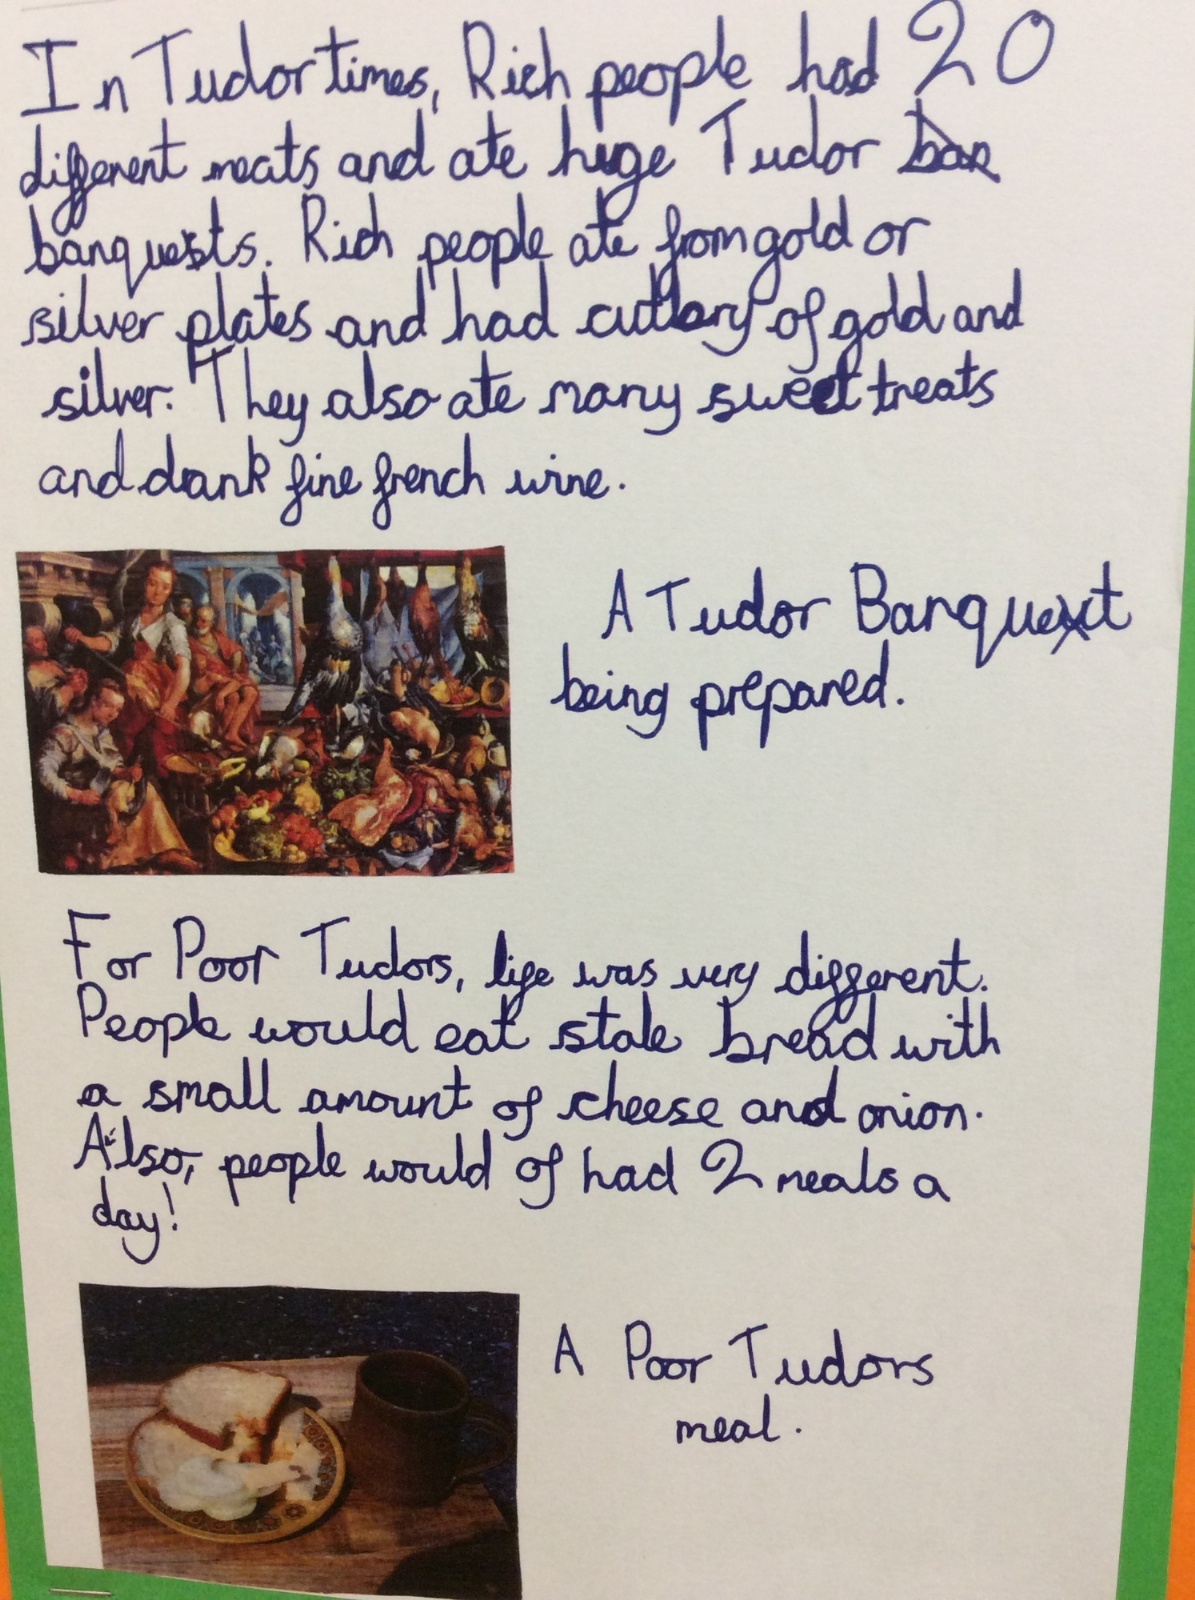 In Tudor times, Rich people had 20
different meats and ate huge Tudor
banquests. Rich people ate from gold or
silver plates and had cutlary of gold and
silver. They also ate many sweet treats
and drank fine french wine.
A Tudor Banquet
being prepared.
For Poor Tudors, life was very different.
People would eat stale bread with
a small amount of cheese and onion.
Also, people would of had 2 meals a
day!
A Poor Tudors
meal.